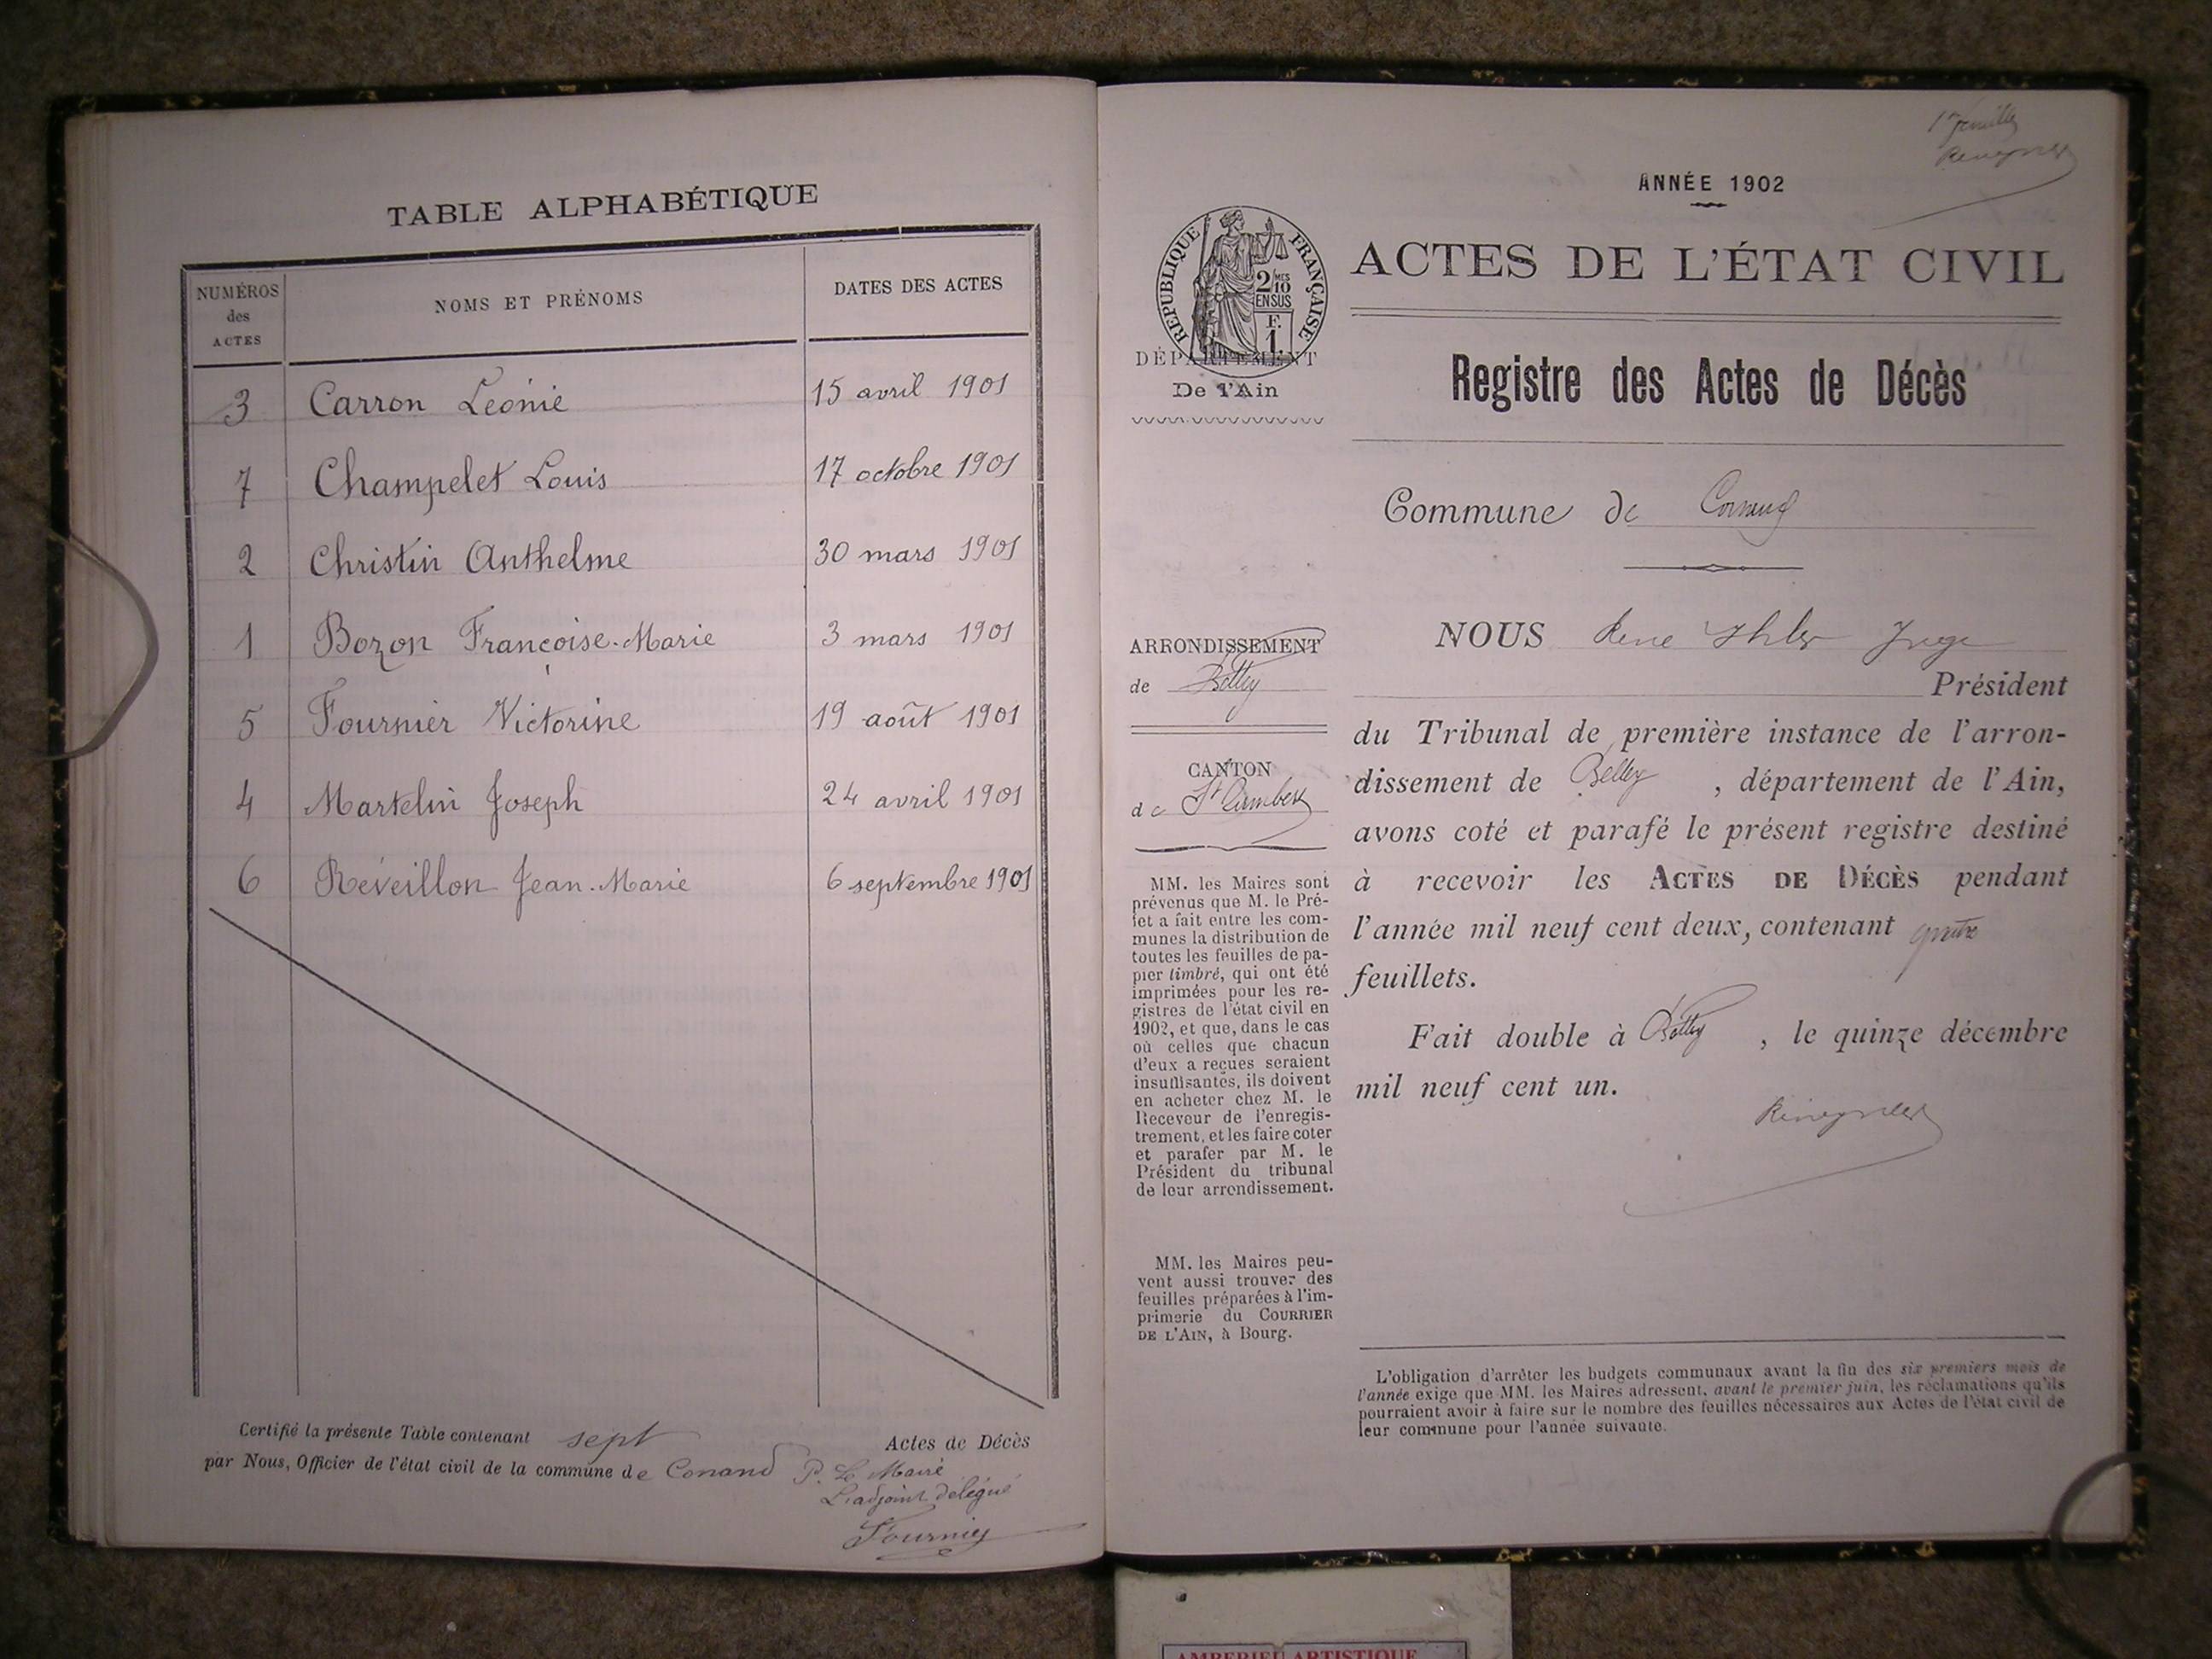 TABLE ALPHABÉTIQUE
NUMÉROS des ACTES
NOMS ET PRÉNOMS
DATES DES ACTES
3 Carron Léonie 15 avril 1901
7 Champelet Louis 17 octobre 1901
2 Christin Anthelme 30 mars 1901
1 Bozon Françoise-Marie 3 mars 1901
5 Fournier Victorine 19 août 1901
4 Martelin Joseph 24 avril 1901
6 Réveillon Jean-Marie 6 septembre 1901
Certifié la présente Table contenant sept Actes de Décès
par Nous, Officier de l'état civil de la commune de Conand P. Le Maire
L'adjoint délégué
Fournier
ANNÉE 1902
RÉPUBLIQUE FRANÇAISE
2/10 MES
EN SUS
F.
1
ACTES DE L'ÉTAT CIVIL
DÉPARTEMENT
De l'Ain
Registre des Actes de Décès
Commune de Conand
ARRONDISSEMENT
de Belley
CANTON
de St Rambert
MM. les Maires sont
prévenus que M. le Pré-
fet a fait entre les com-
munes la distribution de
toutes les feuilles de pa-
pier timbré, qui ont été
imprimées pour les re-
gistres de l'état civil en
1902, et que, dans le cas
où celles que chacun
d'eux a reçues seraient
insuffisantes, ils doivent
en acheter chez M. le
Receveur de l'enregis-
trement, et les faire coter
et parafer par M. le
Président du tribunal
de leur arrondissement.
MM. les Maires peu-
vent aussi trouver des
feuilles préparées à l'im-
primerie du COURRIER
DE L'AIN, à Bourg.
NOUS René Juge
Président
du Tribunal de première instance de l'arron-
dissement de Belley, département de l'Ain,
avons coté et parafé le présent registre destiné
à recevoir les ACTES DE DÉCÈS pendant
l'année mil neuf cent deux, contenant quatre
feuillets.
Fait double à Belley, le quinze décembre
mil neuf cent un.
L'obligation d'arrêter les budgets communaux avant la fin des six premiers mois de
l'année exige que MM. les Maires adressent, avant le premier juin, les réclamations qu'ils
pourraient avoir à faire sur le nombre des feuilles nécessaires aux Actes de l'état civil de
leur commune pour l'année suivante.
AMBERIEU ARTISTIQUE